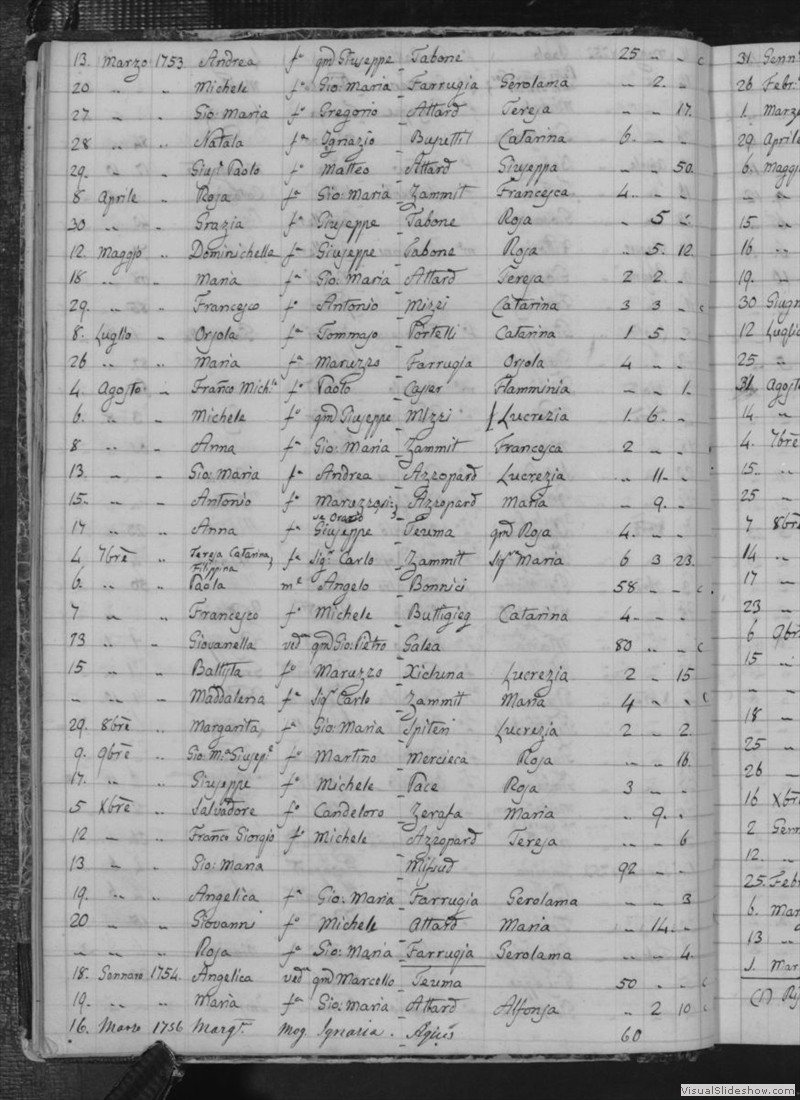 13. Marzo 1753 Andrea fo qm Giuseppe Tabone 25 - - c
20 " " Michele fo Gio: Maria Farrugia Gerolama - 2. -
27 " " Gio: Maria fo Gregorio Attard Teresa - - 17.
28 - " Natala fa Ignazio Busuttil Catarina 6. - -
29. " - Gius.e Paolo fo Matteo Attard Giuseppa - - 50.
8 Aprile - Rosa fa Gio: Maria Zammit Francesca 4. - -
30 " - Grazia fa Giuseppe Tabone Rosa - 5 -
12 Maggio " Dominichella fa Giuseppe Tabone Rosa - 5. 12
18 " " Maria fa Gio: Maria Attard Teresa 2 2 -
29. " - Francesco fo Antonio Mizzi Catarina 3 3 - c
8. Luglio - Orsola fa Tommaso Portelli Catarina 1 5 -
26 " " Maria fa Maruzzo Farrugia Orsola 4 - -
4. Agosto - Franco Mich.le fo Paolo Casier Flamminia - - 1.
6. " - Michele fo qm Giuseppe Mizzi Lucrezia 1. 6. -
8 " - Anna fa Gio: Maria Zammit Francesca 2 - -
13. - " Gio: Maria fo Andrea Azzopard Lucrezia " 11. -
15. - " Antonio fo Azzopard Maria - 9. -
17 - " Anna fa Giuseppe Teuma qm Rosa 4. - -
4 7bre " Teresa Catarina, Filippina fa Sig.r Carlo Zammit Sig.ra Maria 6 3 23.
6. " - Paola Angelo Bonnici 58 - - c
7 " - Francesco fo Michele Buttigieg Catarina 4. - -
13 - " Giovanella ved.a qm Gio: Pietro Galea 80 " - c
15 " " Battista fo Maruzzo Xicluna Lucrezia 2 - 15
- - " Maddalena fa Sig.r Carlo Zammit Maria 4 - - c
29. 8bre " Margarita fa Gio: Maria Spiteri Lucrezia 2 - 2.
9. 9bre " Gio: M.a Giusep.e fo Martino Mercieca Rosa " - 16.
17. " " Giuseppe fo Michele Pace Rosa 3 - -
5 Xbre " Salvadore fo Candeloro Zerafa Maria " 9. -
12 - " Franco Giorgio fo Michele Azzopard Teresa - " 6
13 - " Gio: Maria Mifsud 92 - -
19. " " Angelica fa Gio: Maria Farrugia Gerolama - - 3
20 - " Giovanni fo Michele Attard Maria - 14. -
- - - Rosa fa Gio: Maria Farrugia Gerolama - - 4.
18. Gennaro 1754. Angelica ved.a qm Marcello Teuma 50 - - c
19. " " Maria fa Gio: Maria Attard Alfonsa " 2 10 c
16. Marzo 1756 Marg.ta Mog. Agius 60
31. Genn
26 Febr
1. Marzo
29. Aprile
6. Maggio
- "
15. "
16 "
19. "
30 Giugn
12 Luglio
25. "
31. Agosto
14 "
4. 7bre
15. -
25 "
7 8bre
14 "
17 -
23 "
6 9bre
15 "
- -
18 -
25 "
26 -
16 Xbre
2 Genn
12. "
25. Febr
6. Mar
13 "
1. Mar
(1)
VisualSlideshow.com